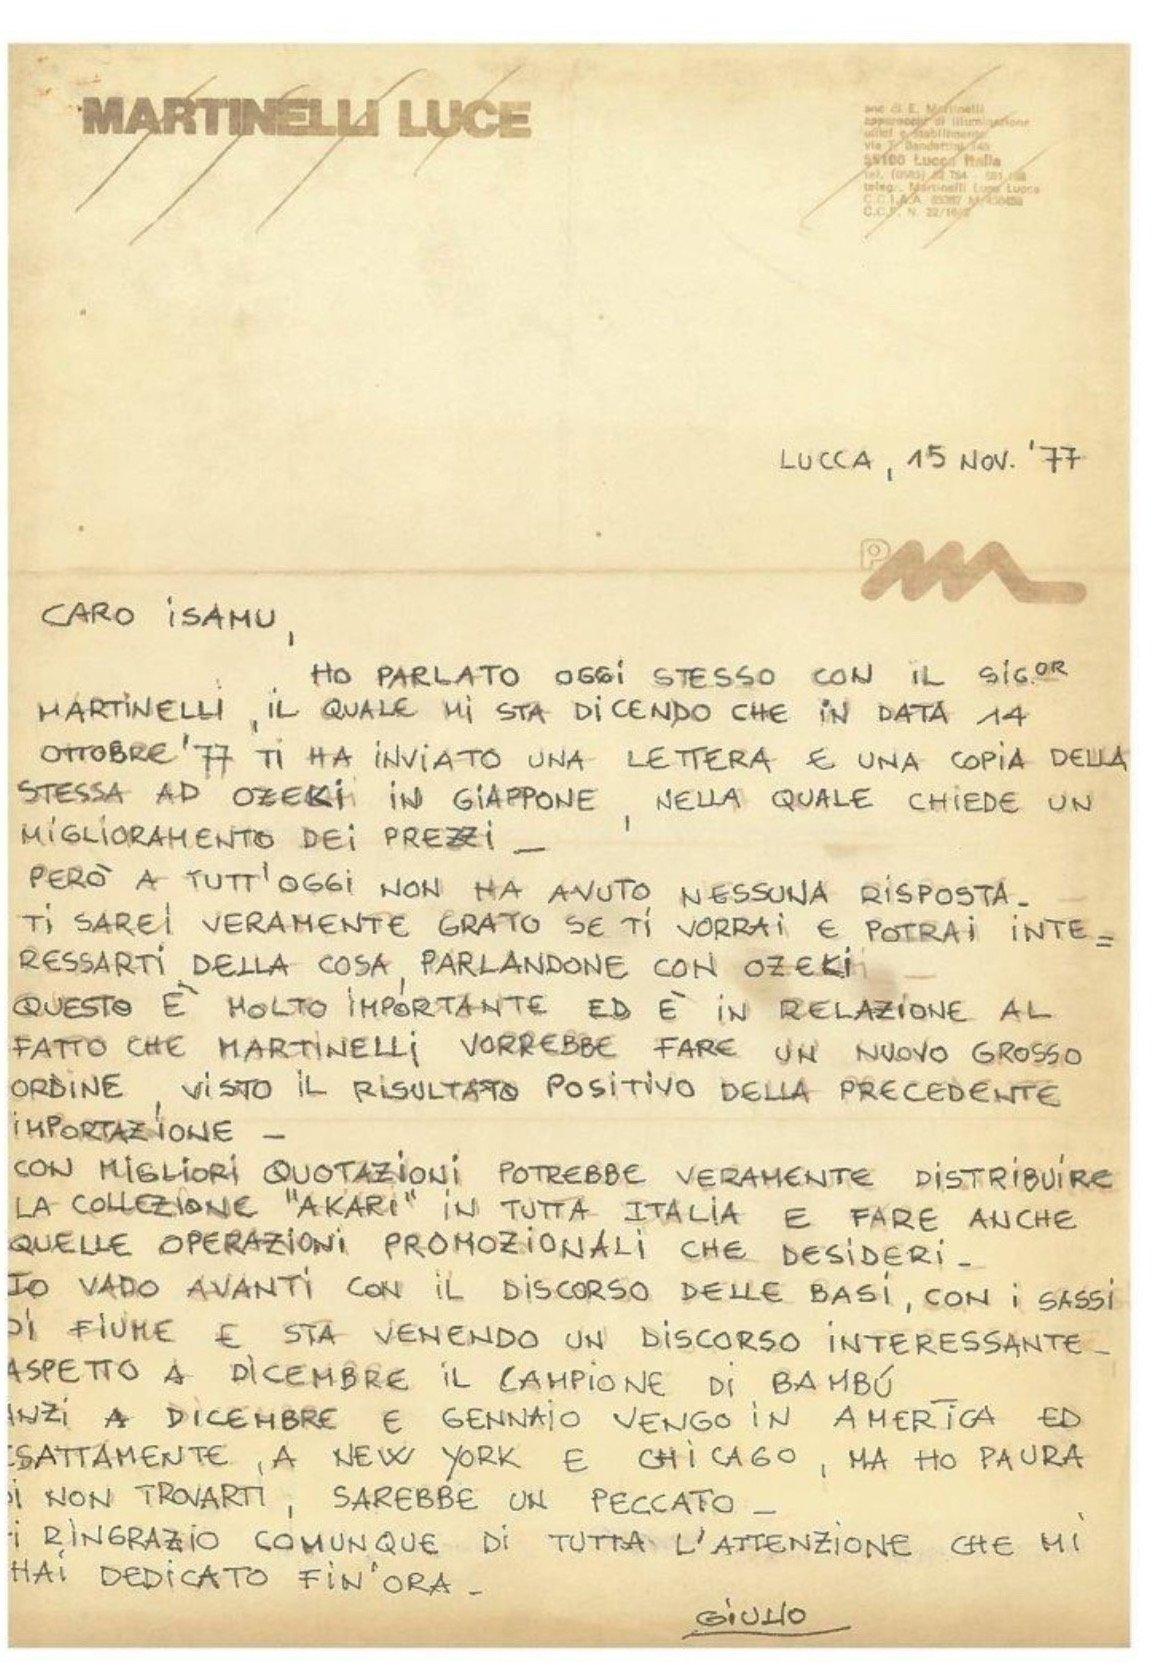 MARTINELLI LUCE
anc di E. Martinelli
apparecchi di illuminazione
uffici e stabilimento
via T. Bandettini
55100 Lucca Italia
tel. (0583)
telegr. Martinelli Luce Lucca
C.C.I.A.A.
C.C.P. N.
LUCCA, 15 NOV. '77
CARO ISAMU,
HO PARLATO OGGI STESSO CON IL SIG.OR
MARTINELLI, IL QUALE MI STA DICENDO CHE IN DATA 14
OTTOBRE '77 TI HA INVIATO UNA LETTERA E UNA COPIA DELLA
STESSA AD OZEKI IN GIAPPONE, NELLA QUALE CHIEDE UN
MIGLIORAMENTO DEI PREZZI _
PERÒ A TUTT'OGGI NON HA AVUTO NESSUNA RISPOSTA_
TI SAREI VERAMENTE GRATO SE TI VORRAI E POTRAI INTE=
RESSARTI DELLA COSA, PARLANDONE CON OZEKI
QUESTO È MOLTO IMPORTANTE ED È IN RELAZIONE AL
FATTO CHE MARTINELLI VORREBBE FARE UN NUOVO GROSSO
ORDINE, VISTO IL RISULTATO POSITIVO DELLA PRECEDENTE
IMPORTAZIONE _
CON MIGLIORI QUOTAZIONI POTREBBE VERAMENTE DISTRIBUIRE
LA COLLEZIONE "AKARI" IN TUTTA ITALIA E FARE ANCHE
QUELLE OPERAZIONI PROMOZIONALI CHE DESIDERI_
IO VADO AVANTI CON IL DISCORSO DELLE BASI, CON I SASSI
DI FIUME E STA VENENDO UN DISCORSO INTERESSANTE_
ASPETTO A DICEMBRE IL CAMPIONE DI BAMBÚ
ANZI A DICEMBRE E GENNAIO VENGO IN AMERICA ED
ESATTAMENTE, A NEW YORK E CHICAGO, MA HO PAURA
DI NON TROVARTI, SAREBBE UN PECCATO _
TI RINGRAZIO COMUNQUE DI TUTTA L'ATTENZIONE CHE MI
HAI DEDICATO FIN'ORA_
GIULIO